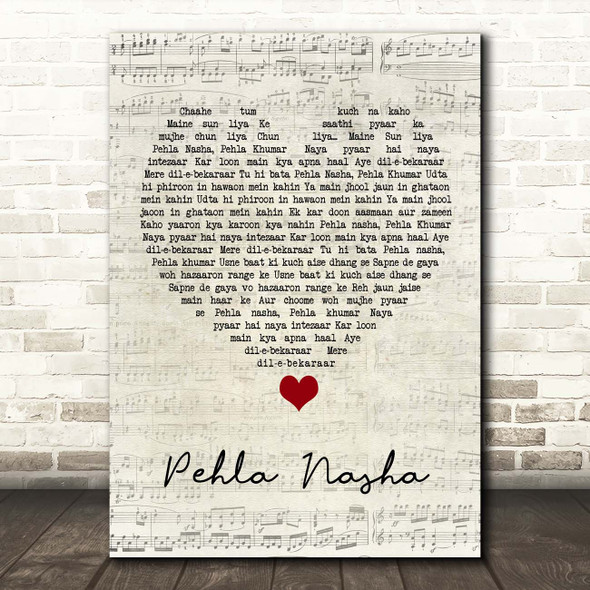 Chaahe tum kuch na kaho
Maine sun liya Ke saathi pyaar ka
mujhe chun liya Chun liya... Maine Sun liya
Pehla Nasha, Pehla Khumar Naya pyaar hai naya
intezaar Kar loon main kya apna haal Aye dil-e-bekaraar
Mere dil-e-bekaraar Tu hi bata Pehla Nasha, Pehla Khumar Udta
hi phiroon in hawaon mein kahin Ya main jhool jaun in ghataon
mein kahin Udta hi phiroon in hawaon mein kahin Ya main jhool
jaoon in ghataon mein kahin Ek kar doon aasmaan aur zameen
Kaho yaaron kya karoon kya nahin Pehla nasha, Pehla Khumar
Naya pyaar hai naya intezaar Kar loon main kya apna haal Aye
dil-e-bekaraar Mere dil-e-bekaraar Tu hi bata Pehla nasha,
Pehla khumar Usne baat ki kuch aise dhang se Sapne de gaya
woh hazaaron range ke Usne baat ki kuch aise dhang se
Sapne de gaya vo hazaaron range ke Reh jaun jaise
main haar ke Aur choome woh mujhe pyaar
se Pehla nasha, Pehla khumar Naya
pyaar hai naya intezaar Kar loon
main kya apna haal Aye
dil-e-bekaraar Mere
dil-e-bekaraar
Pehla Nasha